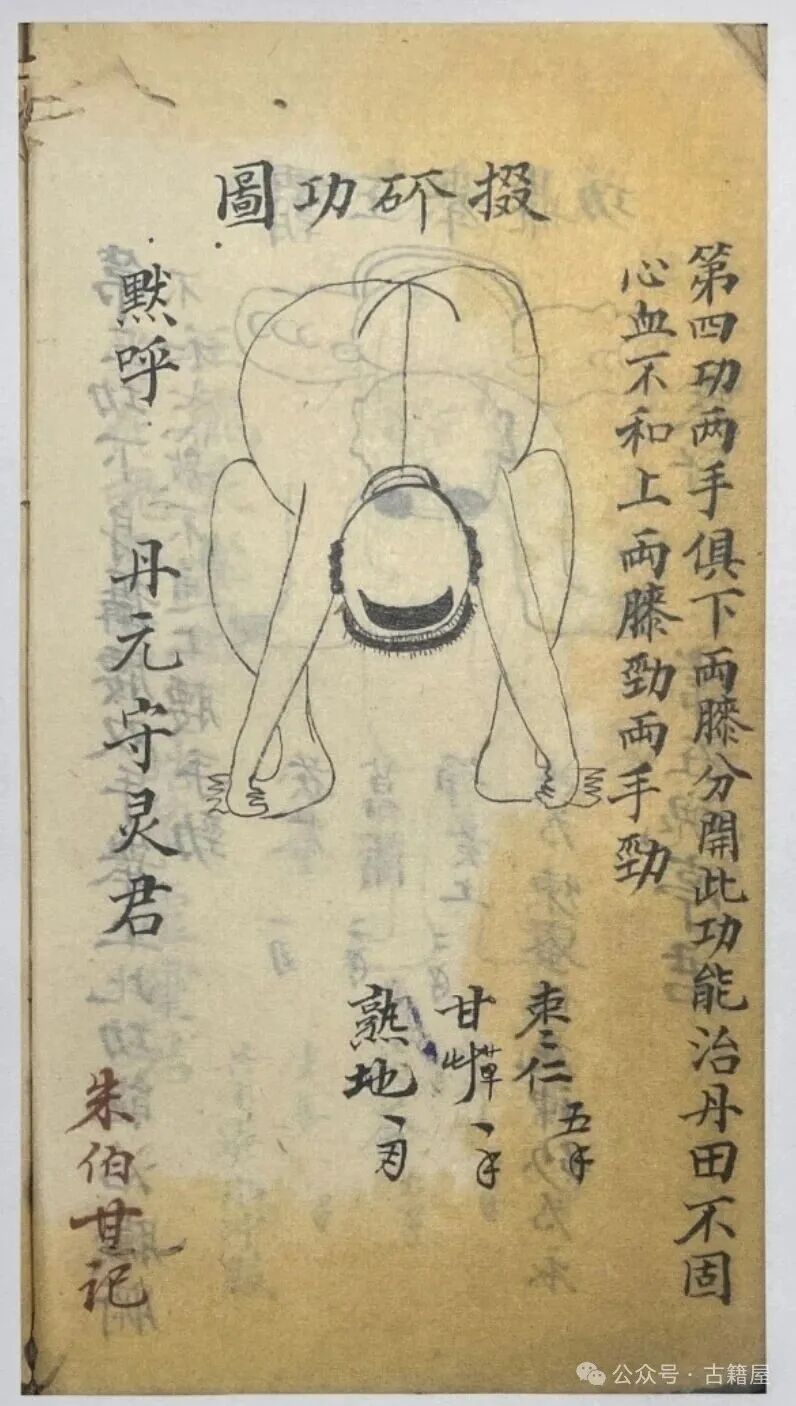 掇功圖
第四功两手俱下両膝分開此功能治丹田不固
心血不和上両膝勁両手勁
枣仁 五
甘草
熟地
默呼 丹元守灵君
朱伯甘记
公众号·古籍屋